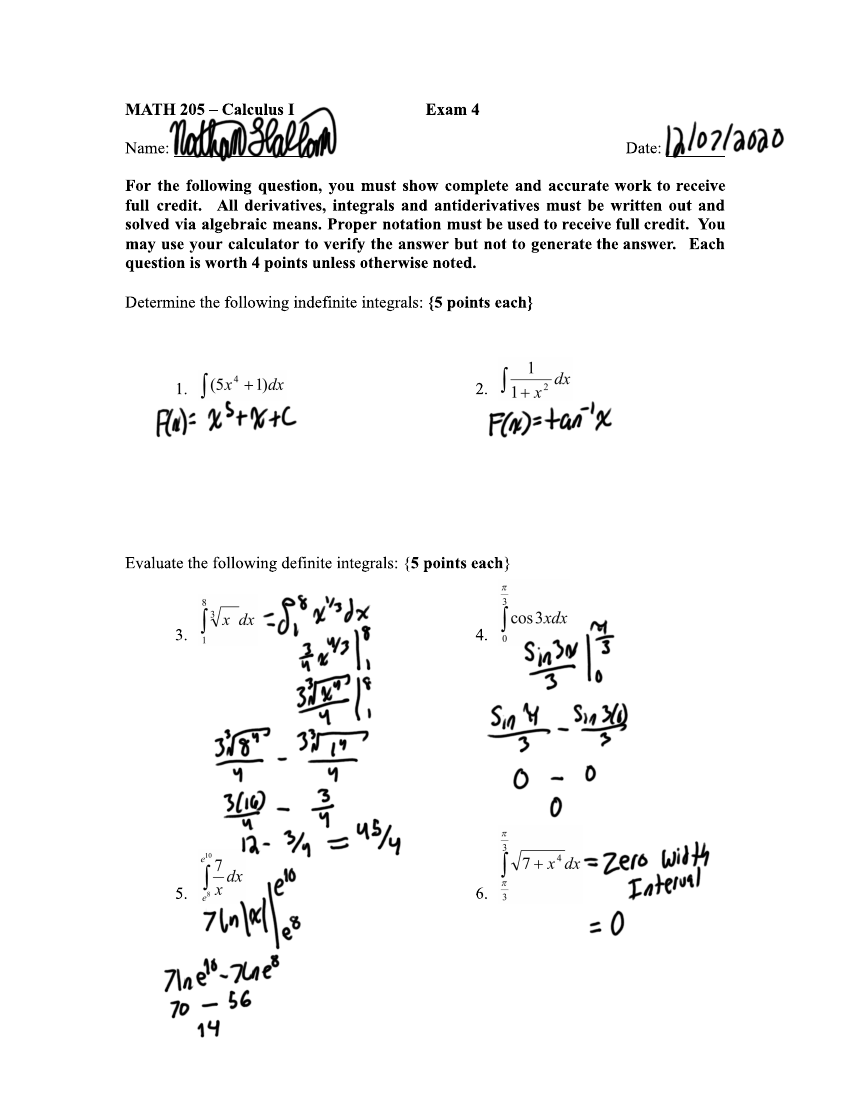 MATH 205 – Calculus I Exam 4
Name: Nathan Date: 12/07/2020
For the following question, you must show complete and accurate work to receive
full credit. All derivatives, integrals and antiderivatives must be written out and
solved via algebraic means. Proper notation must be used to receive full credit. You
may use your calculator to verify the answer but not to generate the answer. Each
question is worth 4 points unless otherwise noted.
Determine the following indefinite integrals: {5 points each}
1. ∫(5x⁴ + 1)dx
F(x) = x⁵ + x + C
2. ∫ 1/(1 + x²) dx
F(x) = tan⁻¹x
Evaluate the following definite integrals: {5 points each}
3. ∫₁⁸ ∛x dx = ∫₁⁸ x^(1/3) dx
3/4 x^(4/3) |₁⁸
3∛(x⁴)/4 |₁⁸
3∛(8⁴)/4 - 3∛(1⁴)/4
3(16)/4 - 3/4
12 - 3/4 = 45/4
4. ∫₀^(π/3) cos 3x dx
Sin3x/3 |₀^(π/3)
Sin π/3 - Sin 3(0)/3
0 - 0
0
5. ∫_(e⁸)^(e¹⁰) 7/x dx
7 ln|x| |_(e⁸)^(e¹⁰)
7ln e¹⁰ - 7ln e⁸
70 - 56
14
6. ∫_(π/3)^(π/3) √(7 + x⁴) dx = Zero Width
Interval
= 0